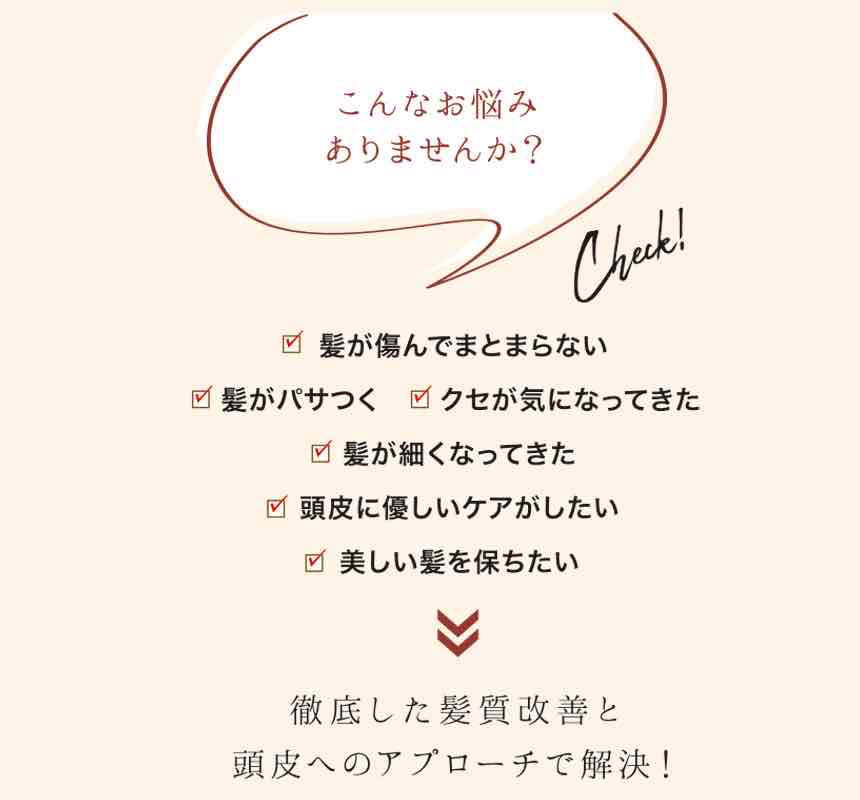 こんなお悩み
ありませんか?
Check!
髪が傷んでまとまらない
髪がパサつく クセが気になってきた
髪が細くなってきた
頭皮に優しいケアがしたい
美しい髪を保ちたい
徹底した髪質改善と
頭皮へのアプローチで解決!